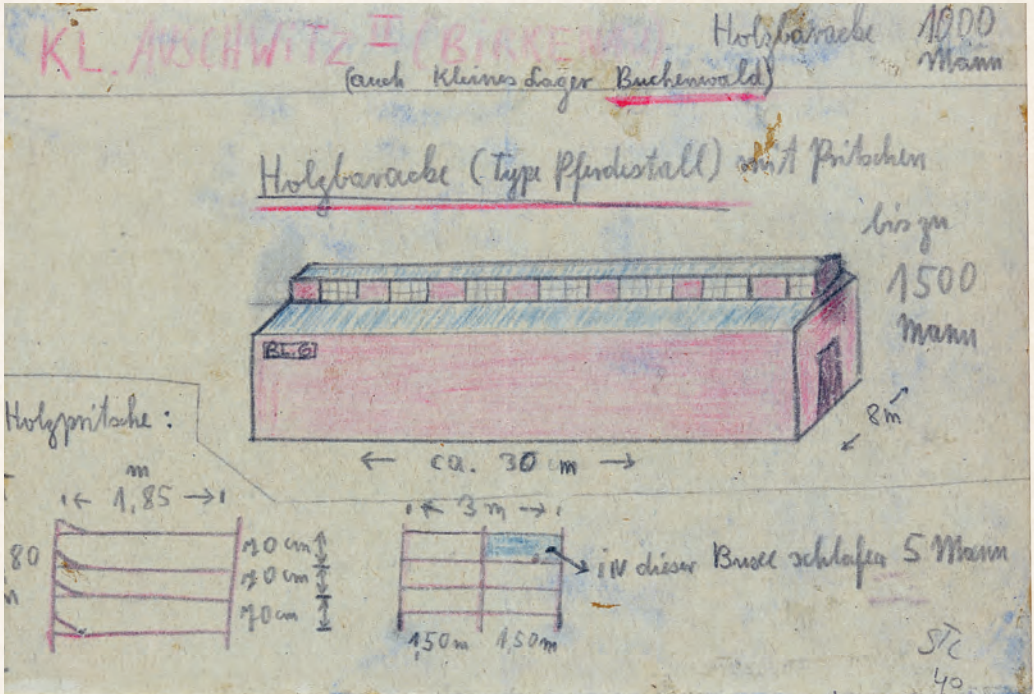 KL. AUSCHWITZ II (BIRKENAU)
Holzbaracke 1000
Mann
(auch Kleines Lager Buchenwald)
Holzbaracke (Type Pferdestall) mit Pritschen
bis zu
1500
Mann
BL. 6
8m
← ca. 30 m →
Holzpritsche:
m
← 1,85 →
← 3 m →
80
70 cm
70 cm
70 cm
in dieser Buxe schlafen 5 Mann
1,50m 1,50m
40